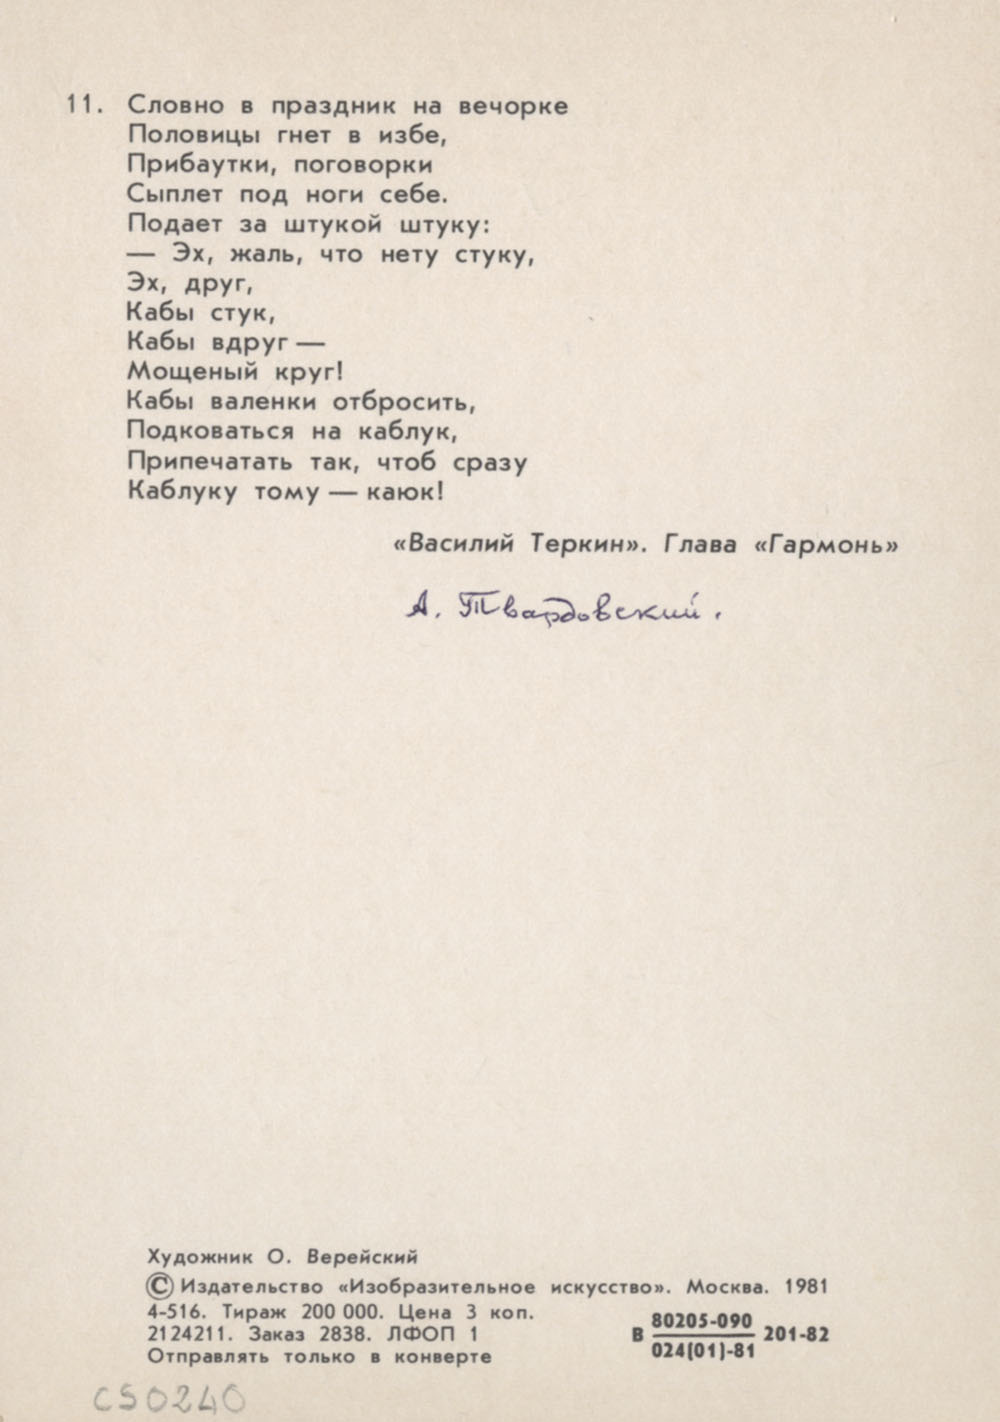 11. Словно в праздник на вечорке
Половицы гнет в избе,
Прибаутки, поговорки
Сыплет под ноги себе.
Подает за штукой штуку:
— Эх, жаль, что нету стуку,
Эх, друг,
Кабы стук,
Кабы вдруг —
Мощеный круг!
Кабы валенки отбросить,
Подковаться на каблук,
Припечатать так, чтоб сразу
Каблуку тому — каюк!
«Василий Теркин». Глава «Гармонь»
А. Твардовский.
Художник О. Верейский
© Издательство «Изобразительное искусство». Москва. 1981
4-516. Тираж 200 000. Цена 3 коп.
2124211. Заказ 2838. ЛФОП 1
Отправлять только в конверте
В 80205-090 201-82
024(01)-81
CS0240